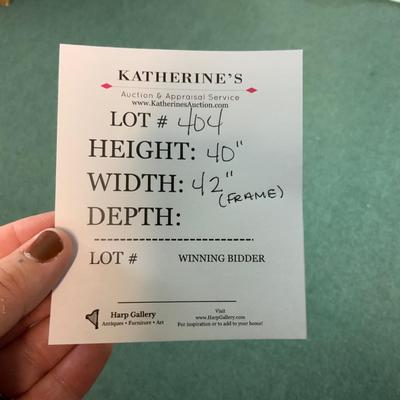 KATHERINE'S
Auction & Appraisal Service
www.KatherinesAuction.com
LOT # 404
HEIGHT: 40"
WIDTH: 42"
(FRAME)
DEPTH:
LOT # WINNING BIDDER
Harp Gallery
Antiques • Furniture • Art
Visit
www.HarpGallery.com
For inspiration or to add to your home!